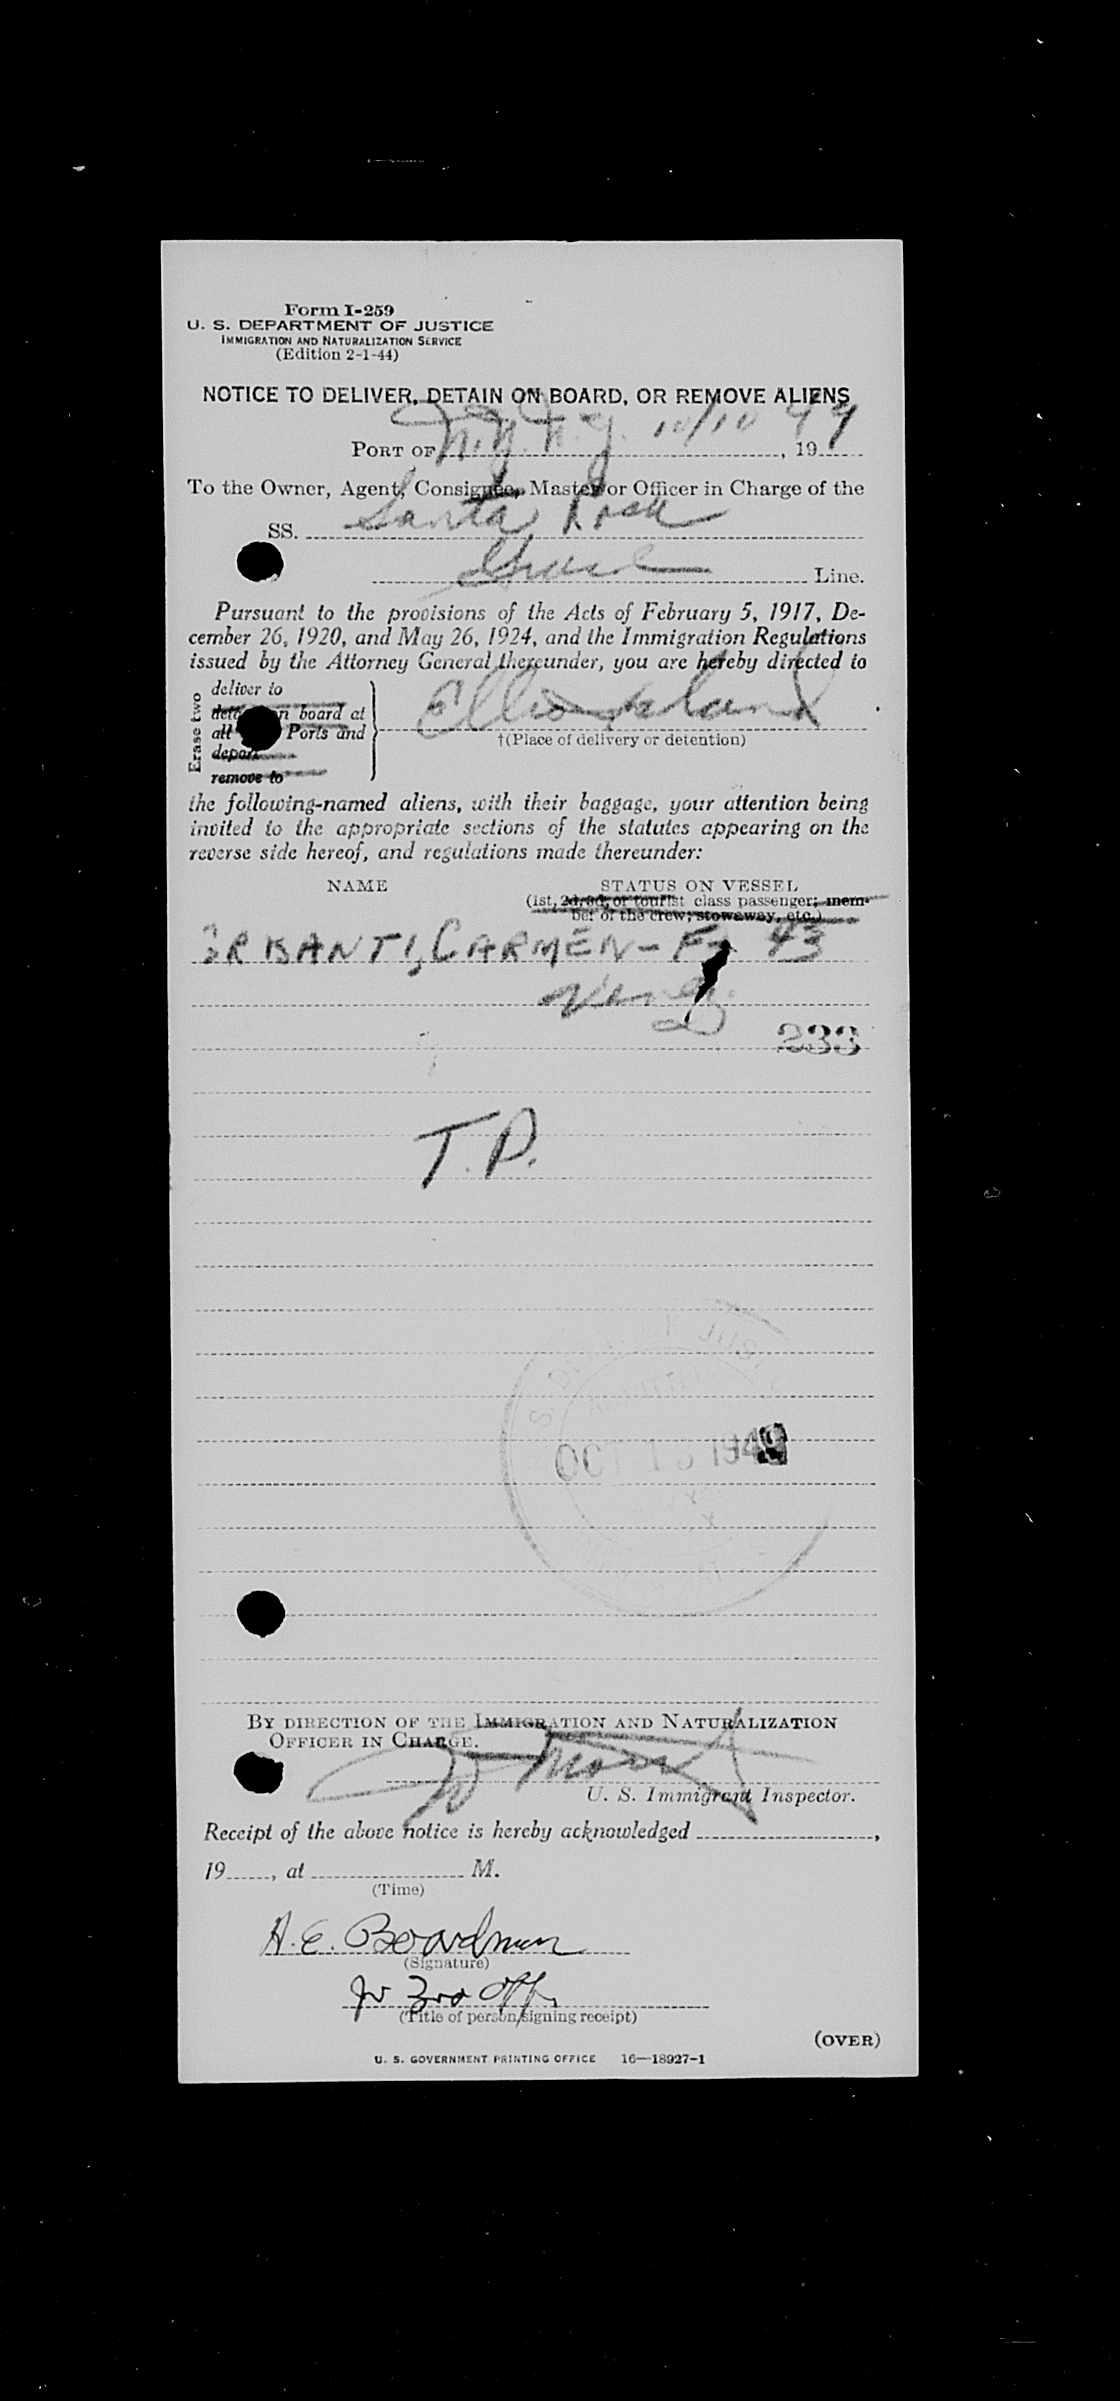 Form I-259
U. S. DEPARTMENT OF JUSTICE
IMMIGRATION AND NATURALIZATION SERVICE
(Edition 2-1-44)
NOTICE TO DELIVER, DETAIN ON BOARD, OR REMOVE ALIENS
PORT OF N.Y. N.Y. 10/10, 1949
To the Owner, Agent, Consignee, Master or Officer in Charge of the
SS. Santa Rosa
Grace Line.
Pursuant to the provisions of the Acts of February 5, 1917, De-
cember 26, 1920, and May 26, 1924, and the Immigration Regulations
issued by the Attorney General thereunder, you are hereby directed to
Erase two
deliver to
n board at
all Ports and
depart
remove to
Ellis Island
†(Place of delivery or detention)
the following-named aliens, with their baggage, your attention being
invited to the appropriate sections of the statutes appearing on the
reverse side hereof, and regulations made thereunder:
NAME STATUS ON VESSEL
(1st, 2d, 3d, or tourist class passenger; mem-
ber of the crew; stowaway, etc.)
CARMEN - F- 43
Venez.
233
T.P.
OCT 1949
BY DIRECTION OF THE IMMIGRATION AND NATURALIZATION
OFFICER IN CHARGE.
U. S. Immigrant Inspector.
Receipt of the above notice is hereby acknowledged ,
19 , at M.
(Time)
A. E. Boardman
(Signature)
Jr 3rd Off.
(Title of person signing receipt)
(OVER)
U. S. GOVERNMENT PRINTING OFFICE 16—18927-1